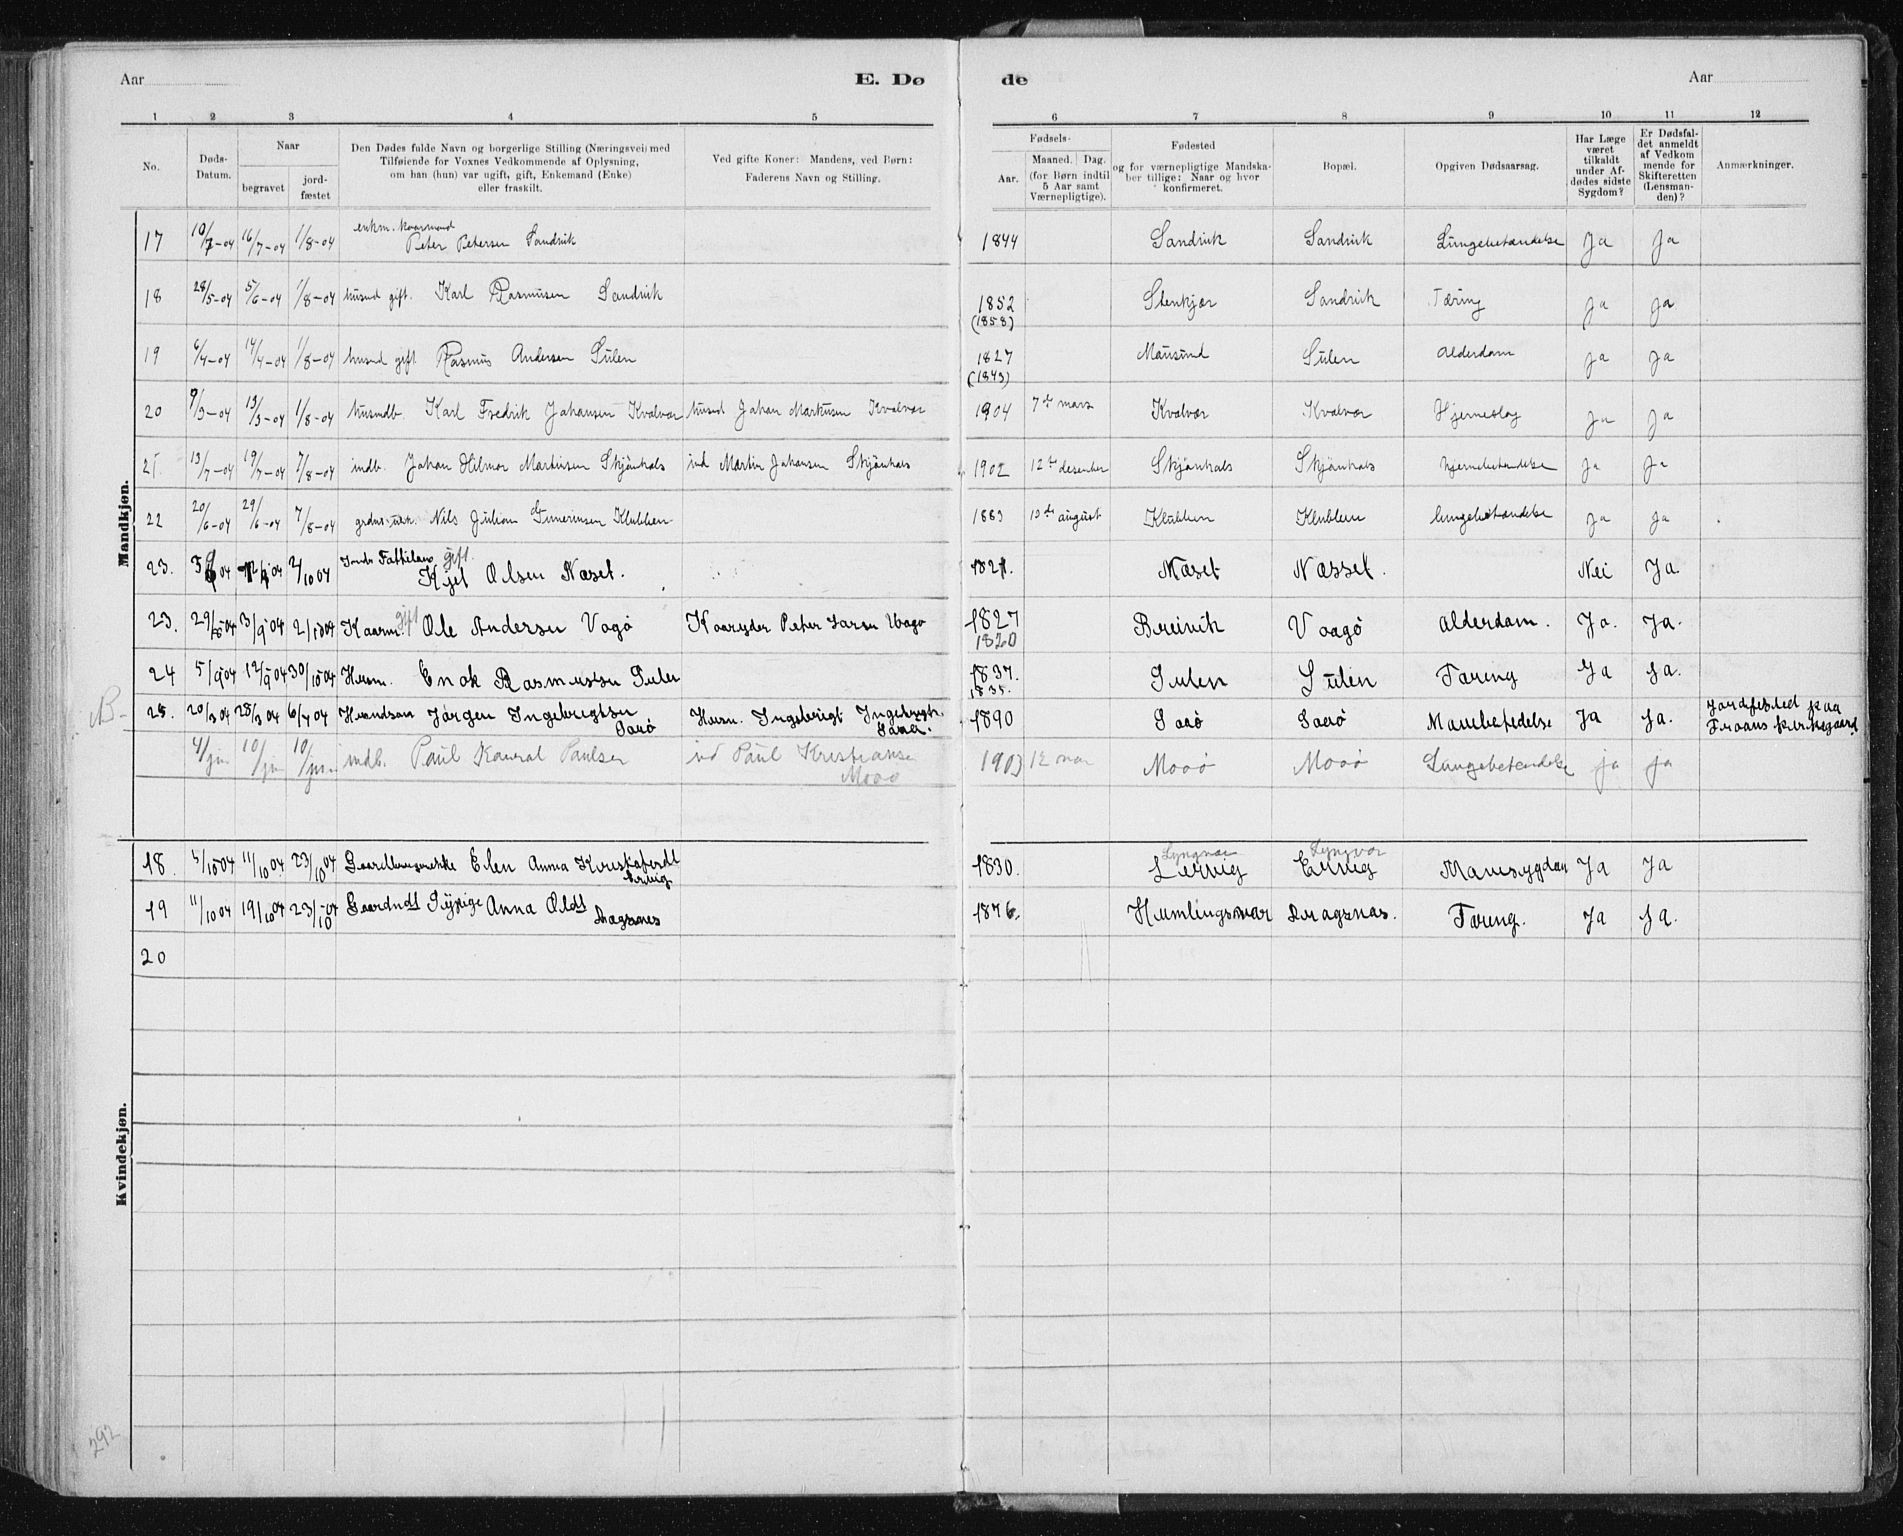 Aar
E. Dø
de
Aar
1 2 3 4 5 6 7 8 9 10 11 12
No.
Døds-Datum.
Naar
begravet
jord-fæstet
Den Dødes fulde Navn og borgerlige Stilling (Næringsvei) med
Tilføiende for Voxnes Vedkommende af Oplysning,
om han (hun) var ugift, gift, Enkemand (Enke)
eller fraskilt.
Ved gifte Koner: Mandens, ved Børn:
Faderens Navn og Stilling.
Fødsels-
Aar.
Maaned. Dag.
(for Børn indtil
5 Aar samt
Værnepligtige).
Fødested
og for værnepligtige Mandska-
ber tillige: Naar og hvor
konfirmeret.
Bopæl.
Opgiven Dødsaarsag.
Har Læge
været
tilkaldt
under Af-
dødes sidste
Sygdom?
Er Dødsfal-
det anmeldt
af Vedkom
mende for
Skifteretten
(Lensman-
den)?
Anmærkninger.
Mandkjøn.
17 10/7-04 16/7-04 1/8-04 enkm. Kaarmand Peter Petersen Sandvik 1844 Sandvik Sandvik Lungebetændelse Ja Ja
18 28/5-04 5/6-04 1/8-04 husmd gift. Karl Rasmusen Sandvik 1852 (1858) Stenkjær Sandvik Tæring Ja Ja
19 6/4-04 14/4-04 1/8-04 husmd gift Rasmus Andersen Sulen 1827 (1843) Mausund Sulen Alderdom Ja Ja
20 9/3-04 13/3-04 1/8-04 husmdb. Karl Fredrik Johansen Kvalvær husmd Johan Markusen Kvalvær 1904 7de mars Kvalvær Kvalvær Hjerneslag Ja Ja
21. 13/7-04 19/7-04 7/8-04 indb. Johan Hilmar Martinsen Skjönhals ind Martin Johansen Skjönhals 1902 12te desember Skjönhals Skjönhals hjernebetændelse Ja Ja
22 20/6-04 29/6-04 7/8-04 Nils Julian Klubben 1883 19de august Klubben Klubben lungebetændelse Ja Ja
23. 04 04 2/10 04 Inds Fattiglem gift. Kjel Olsen Næset. 1821. Næset Næsset. Nei Ja.
23. 29/8 04 3/9 04 2/10 04 Kaarm. gift Ole Andersen Vagø Kaaryder Peter Larsen Vagø 1827 1820 Breivik Vaagø Alderdom. Ja. Ja.
24 5/9 04 12/9 04 30/10 04 Husm. Enok Rasmussen Sulen 1837. 1835. Sulen Sulen Tæring Ja Ja.
NB- 25. 20/3 04 28/3 04 6/4 04 Husmdsøn Jørgen Ingebrigtsen Saaø Husm. Ingebrigt Ingebrigts. 1890 Saaø Saaø Mavebetedelse Ja Ja. Jordfæsted paa Froans kirkegaard
4/jun 10/jun 10/jun indb. Paul Konrat Paulsen ind Paul Kristiansen Moaø 1903 12 mar Moaø Moaø Lungebetendelse Ja Ja
Kvindekjøn.
18. 5/10 04 11/10 04 23/10 04 Gaardbrugerske Elen Anna Kristofersdt Ervig 1830. Lyngvær Lervig Lyngvær Ervig Mavesygdom Ja Ja
19 11/10 04 19/10 04 23/10-04 Gaardmdt Pige Anna Olsdt Dragsnes 1876. Humlingsvær Dragsnæs. Tæring. Ja Ja.
20
292